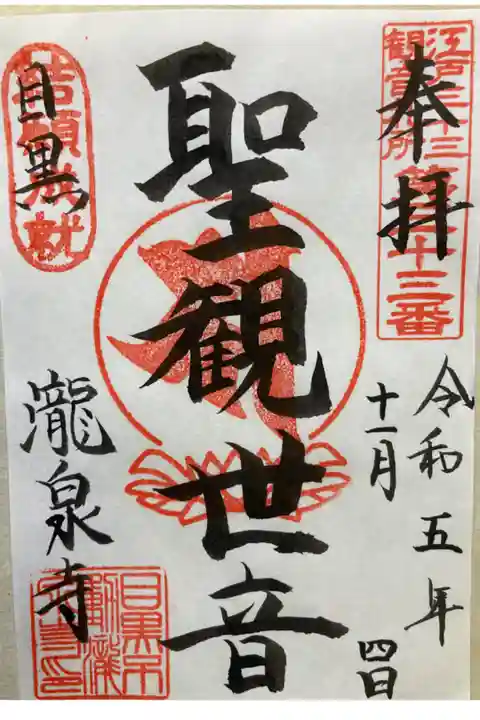 江戸三十三
観音札所
第三十三番
奉拝
令和五年
十一月
四日
聖観世音
結願成就
目黒
瀧泉寺
目黒不
動瀧